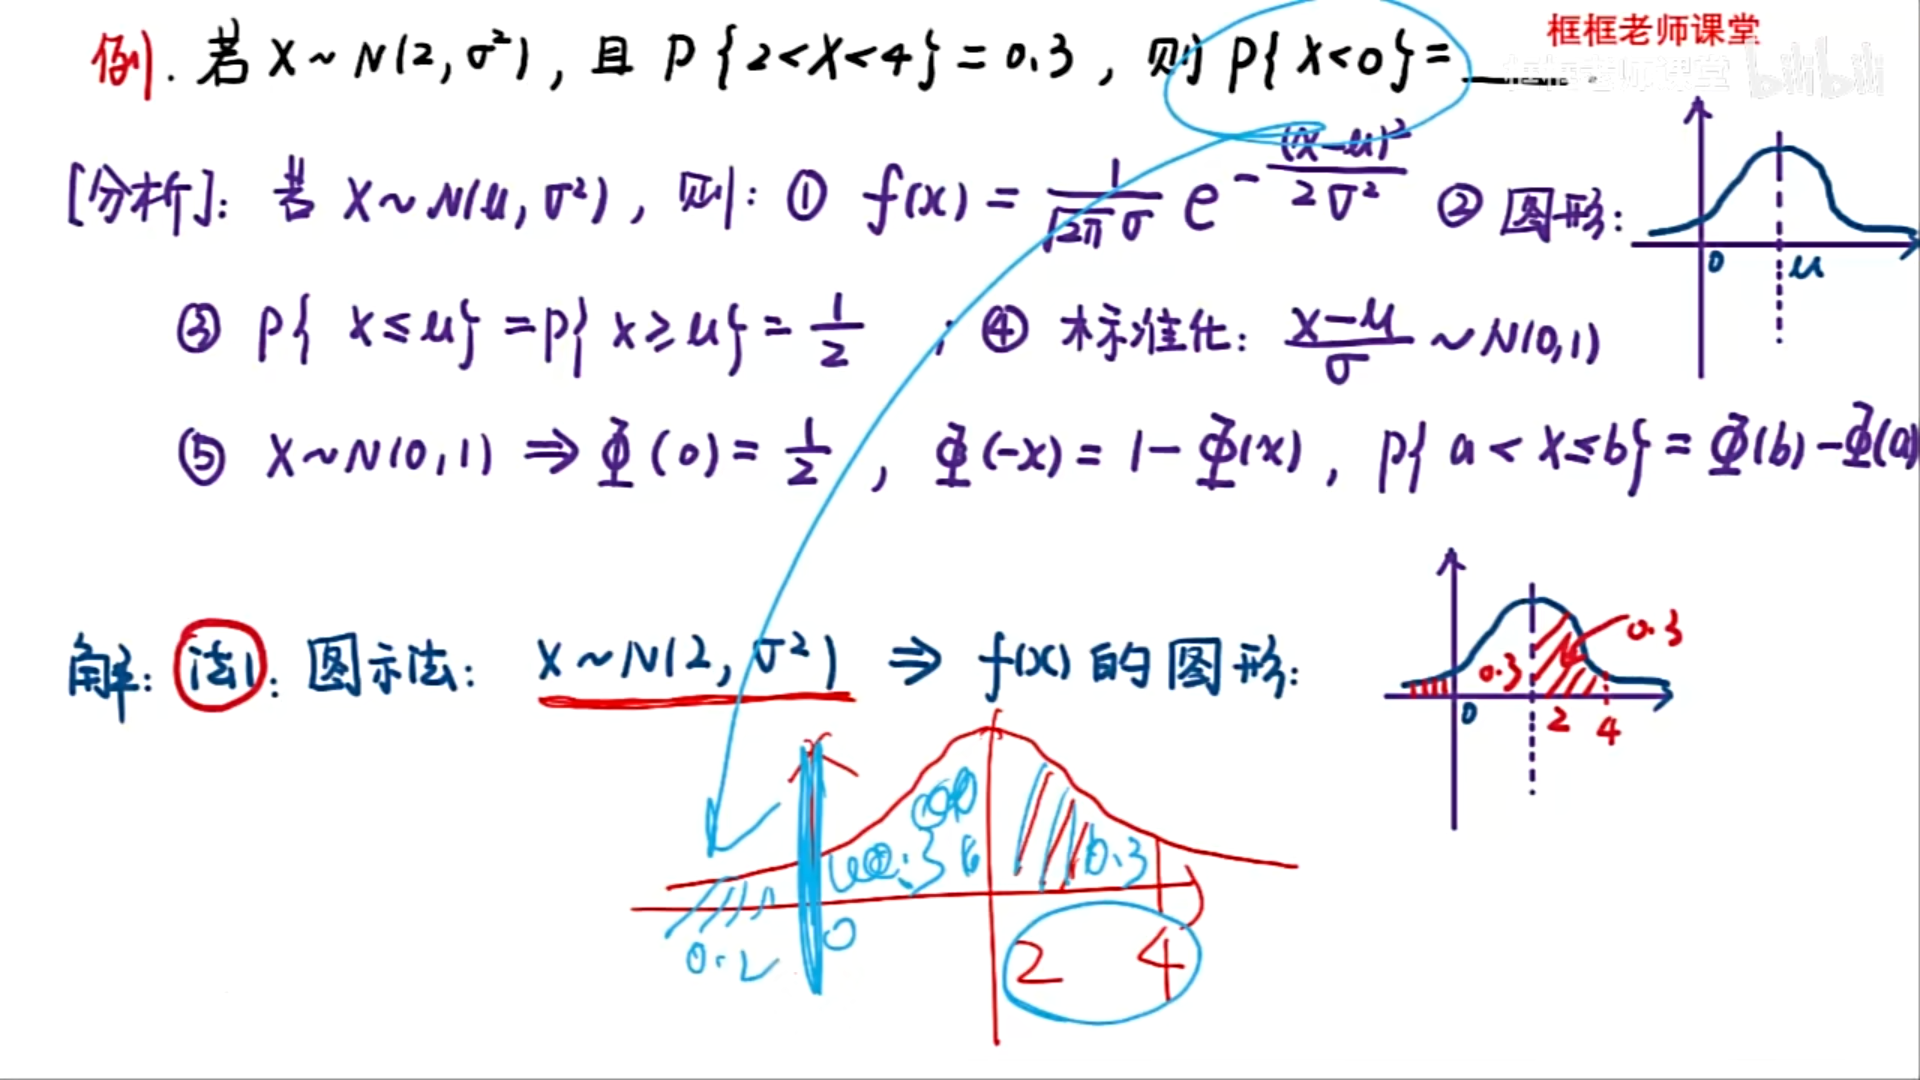 框框老师课堂
例. 若 X~N(2, σ²), 且 P{2<X<4}=0.3, 则 P{X<0}=____.
框框老师课堂 bilibili
[分析]: 若 X~N(μ, σ²), 则: ① f(x) = 1/(√2π σ) e^-(x-μ)²/2σ² ② 图形:
0 μ
③ P{ X≤μ} =P{ X≥μ} = 1/2 ; ④ 标准化: X-μ/σ ~N(0,1)
⑤ X~N(0,1) ⇒ Φ(0)= 1/2, Φ(-x)= 1-Φ(x), P{ a < X≤b} = Φ(b)-Φ(a)
解: 法1: 图示法: X~N(2, σ²) ⇒ f(x) 的图形:
0.3 0.3
0 2 4
0.3 0.3
0.2 0 2 4